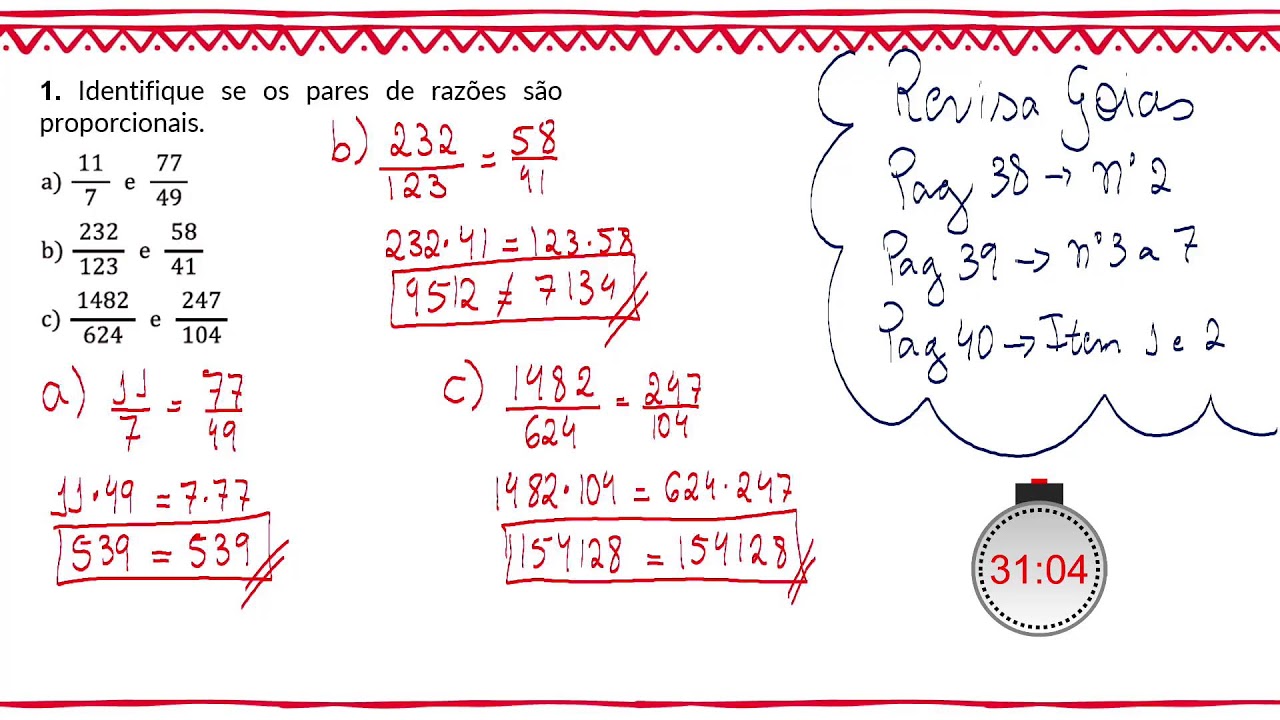 1. Identifique se os pares de razões são
proporcionais.
a) 11/7 e 77/49
b) 232/123 e 58/41
c) 1482/624 e 247/104
b) 232/123 = 58/41
232·41 = 123·58
9512 ≠ 7134
a) 11/7 = 77/49
11·49 = 7·77
539 = 539
c) 1482/624 = 247/104
1482·104 = 624·247
154128 = 154128
Revisa Goias
Pag 38 → n° 2
Pag 39 → n° 3 a 7
Pag 40 → Item 1 e 2
31:04